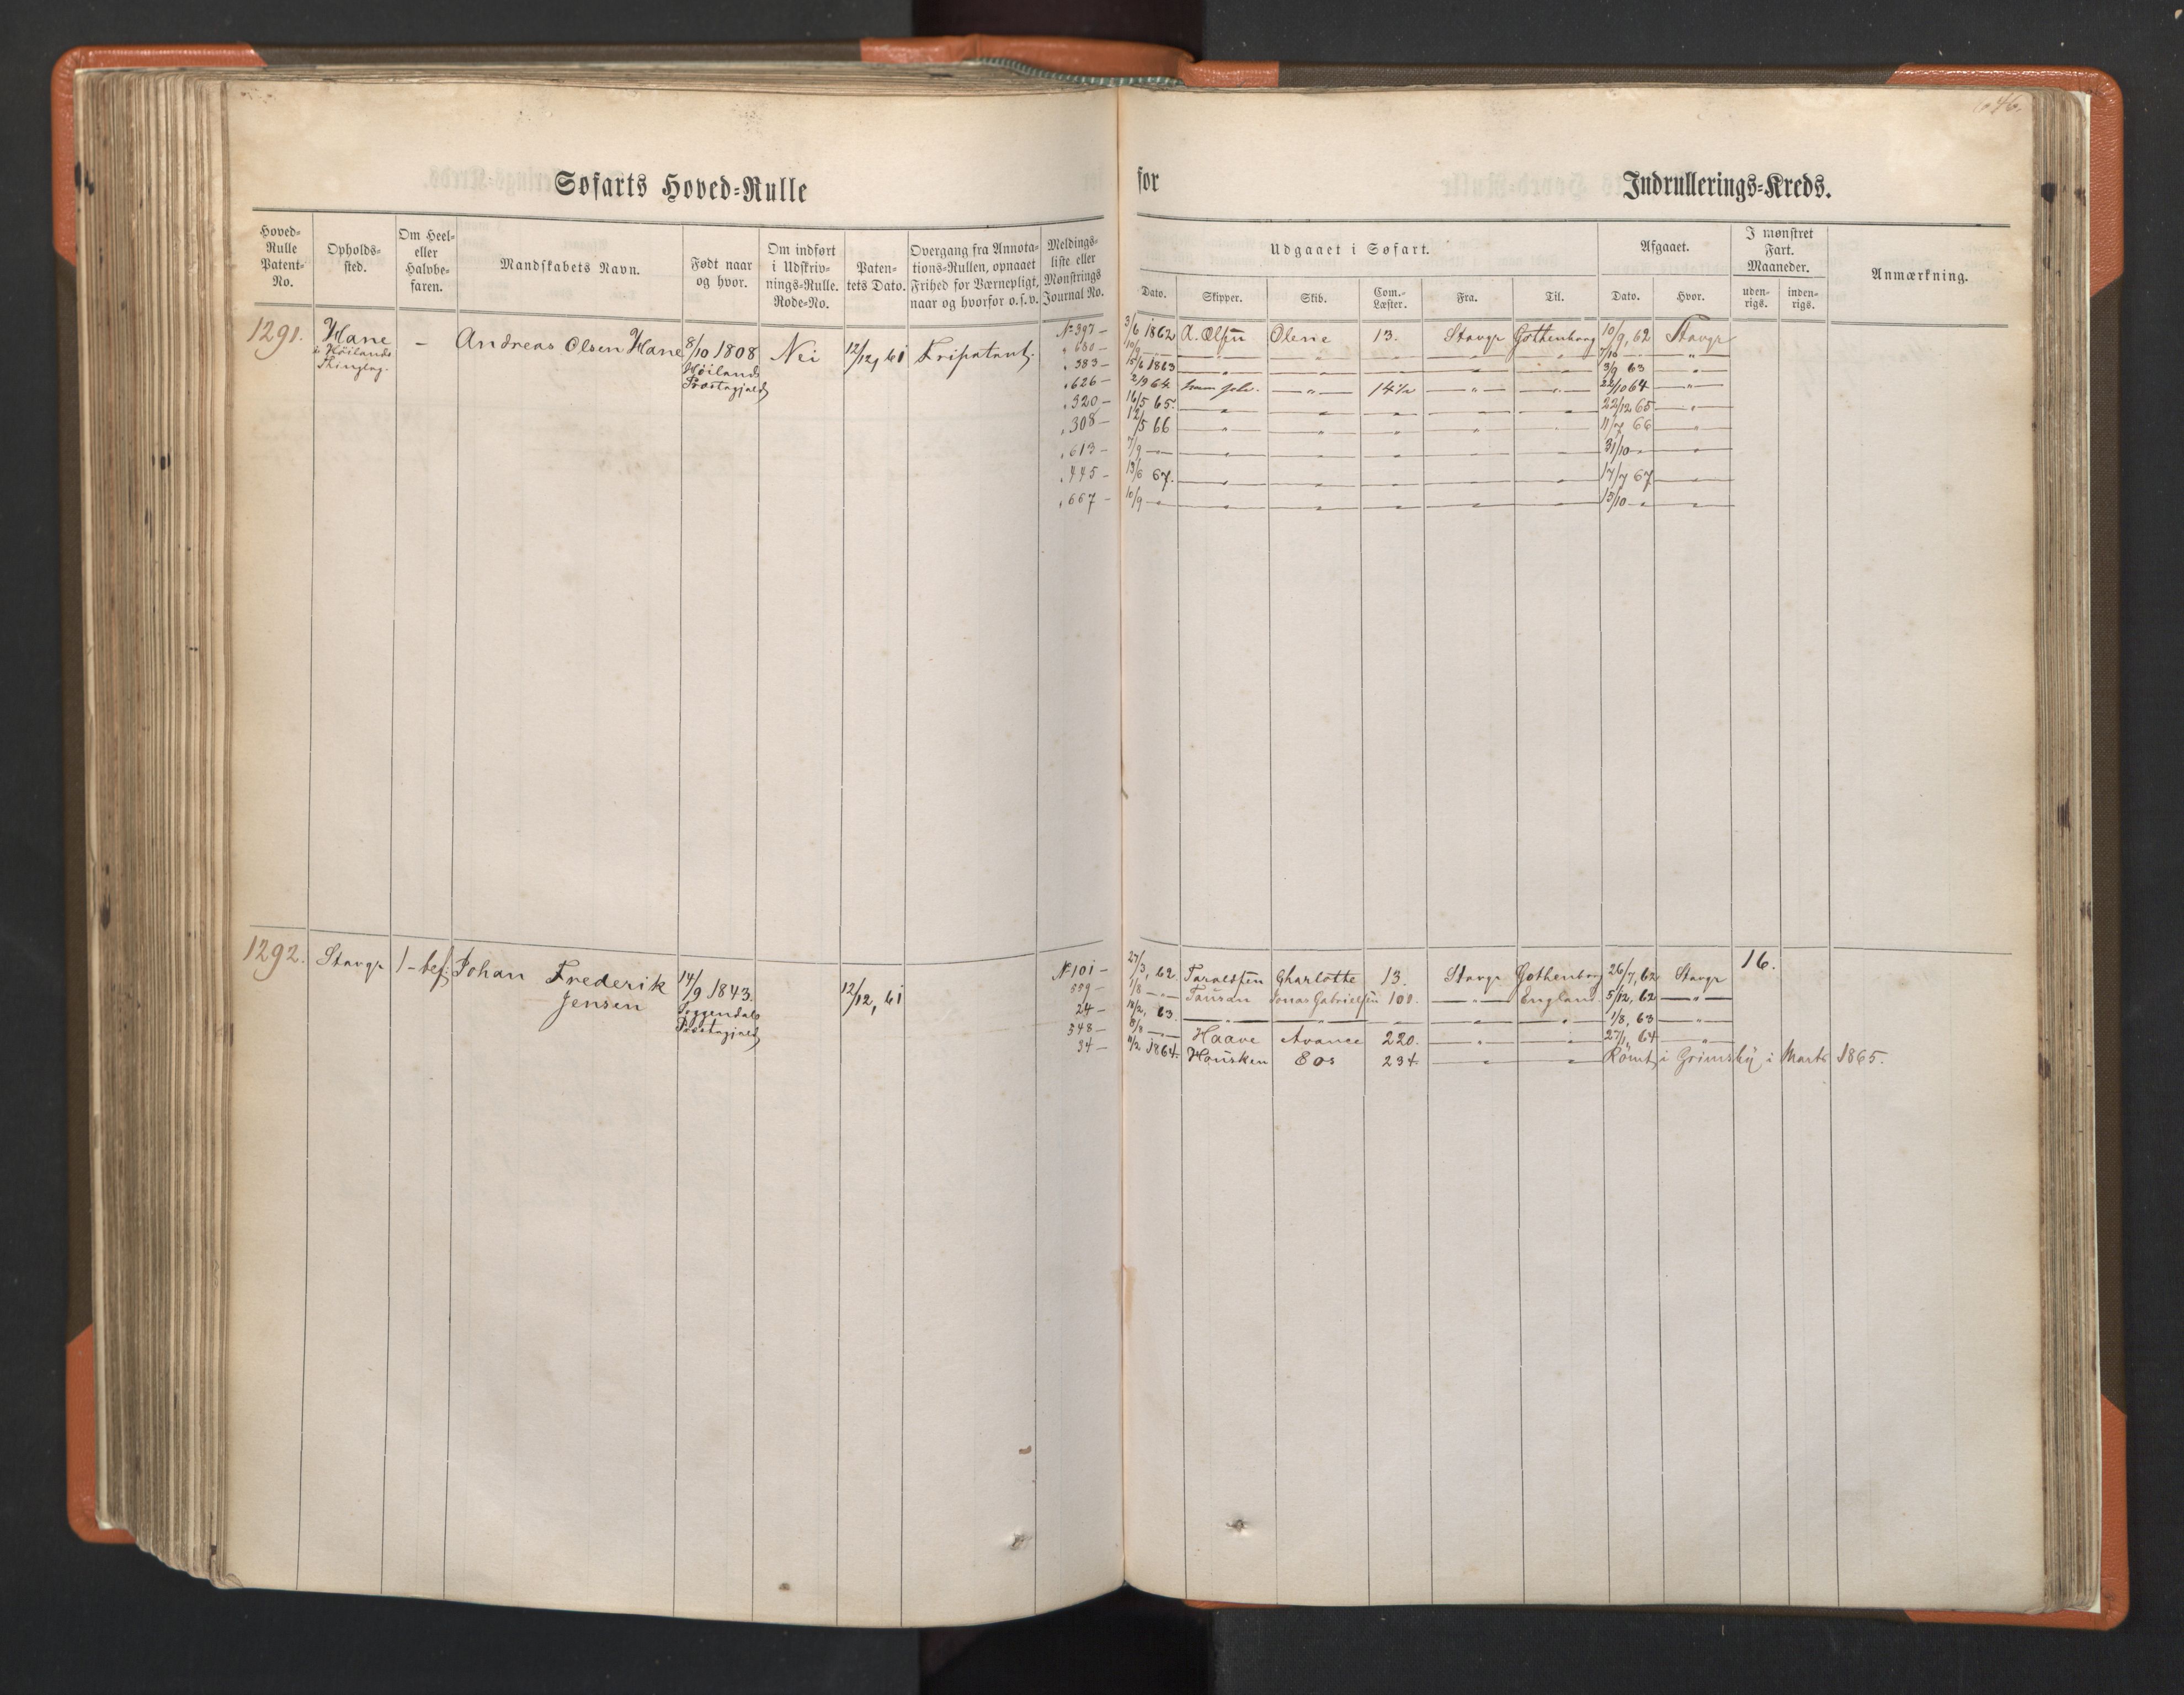 646.
Søfarts Hoved=Rulle
for Indrullerings=Kreds.
Hoved=Rulle Patent=No.
Opholds=sted.
Om Heel= eller Halvbe=faren.
Mandskabets Navn.
Født naar og hvor.
Om indført i Udskriv=nings=Rulle. Rode=No.
Paten=tets Dato.
Overgang fra Annota=tions=Rullen, opnaaet Frihed for Værnepligt, naar og hvorfor o.s.v.
Meldings=liste eller Mønstrings Journal No.
Udgaaet i Søfart.
Dato. Skipper. Skib. Com.=Læster. Fra. Til.
Afgaaet.
Dato. Hvor.
I mønstret Fart. Maaneder.
uden=rigs. inden=rigs.
Anmærkning.
1291. Hane i Höilands Thinglag. - Andreas Olsen Hane 8/10 1808 Höilands Præstegjeld Nei 12/12, 61 Fripatent.
No 397 - 3/6 1862 A. Olsen Olene 13. Stavgr Gothenborg 10/9, 62 Stavgr
" 680 - 10/9 - " - " " " " " 7/10 - " - "
" 383 - 15/6 1863 " " " " " 3/9 63 "
" 626 - 2/9 64 Samme " 14½ " " 22/10 64 "
" 320 - 16/5 65. " " " " " 22/12 65 "
" 308 - 12/5 66 " " " " " 11/7 66 "
" 613 - 7/9 - " " " " " " 31/10 - " "
" 445 - 13/6 67. " " " " " 17/7 67 "
" 667 - 10/9 - " " " " " " 13/10 - " "
1292. Stavgr 1-bef. Johan Frederik Jensen 14/9 1843. Soggendals Præstegjeld 12/12, 61
No 101 - 27/3, 62. Taraldsen Charlotte 13. Stavgr Gothenborg 26/7, 62 Stavgr 16.
559 - 1/8 - " - Tausan Jonas Gabrielsen 100. - " - England. 5/12, 62 - " -
24 - 14/2, 63. " " " " " 1/8, 63 "
548 - 8/8 - " - Haave Avance 220. " " 27/1, 64 "
34 - 11/2 1864. Hausken Eos 234. " " Römt i Grimsby i Marts 1865.